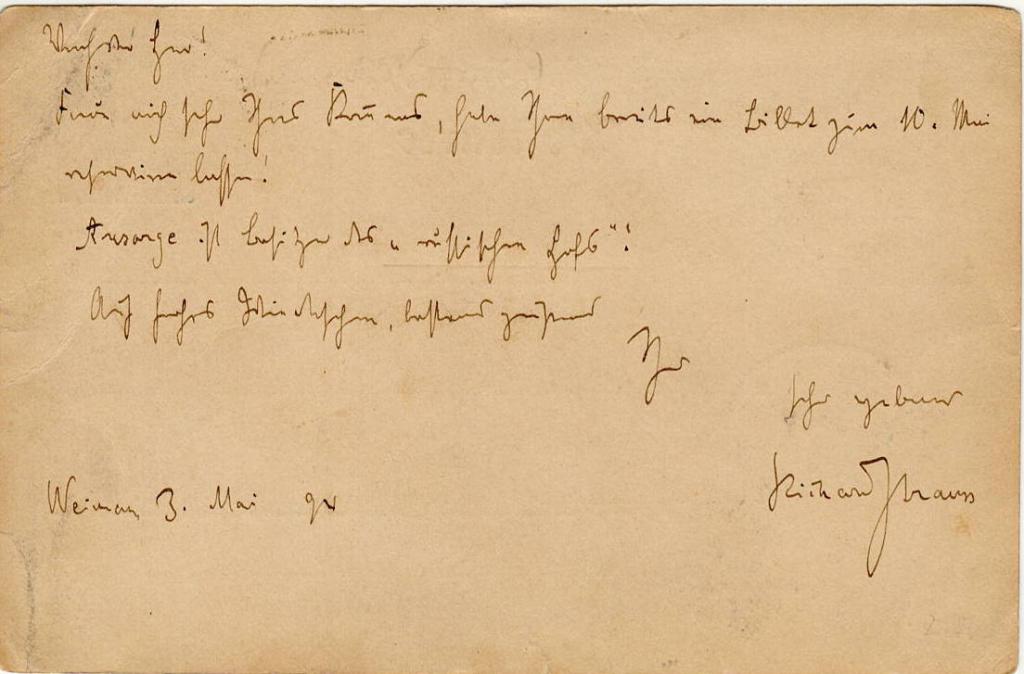 Verehrter Herr!
Freue mich sehr Ihres Kommens, habe Ihnen bereits ein Billet zum 10. Mai
reservieren lassen!
Ansorge ist Besitzer des „russischen Hofs"!
Auf frohes Wiedersehen, bestens grüßend
Ihr
sehr ergebener
Richard Strauss
Weimar, 3. Mai